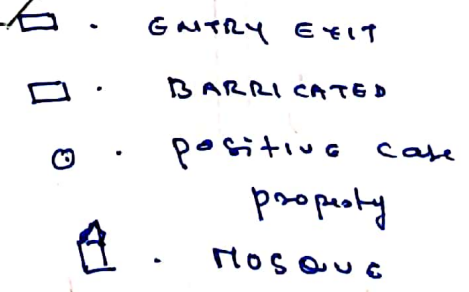 ENTRY EXIT
BARRICATED
positive case
property
MOSQUE